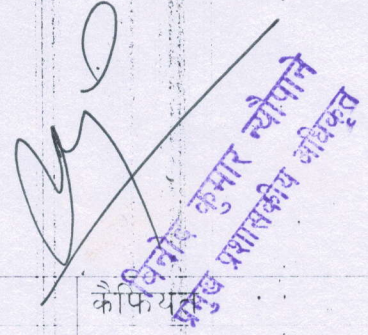 विनोद कुमार न्यौपाने
प्रमुख प्रशासकीय अधिकृत
कैफियत